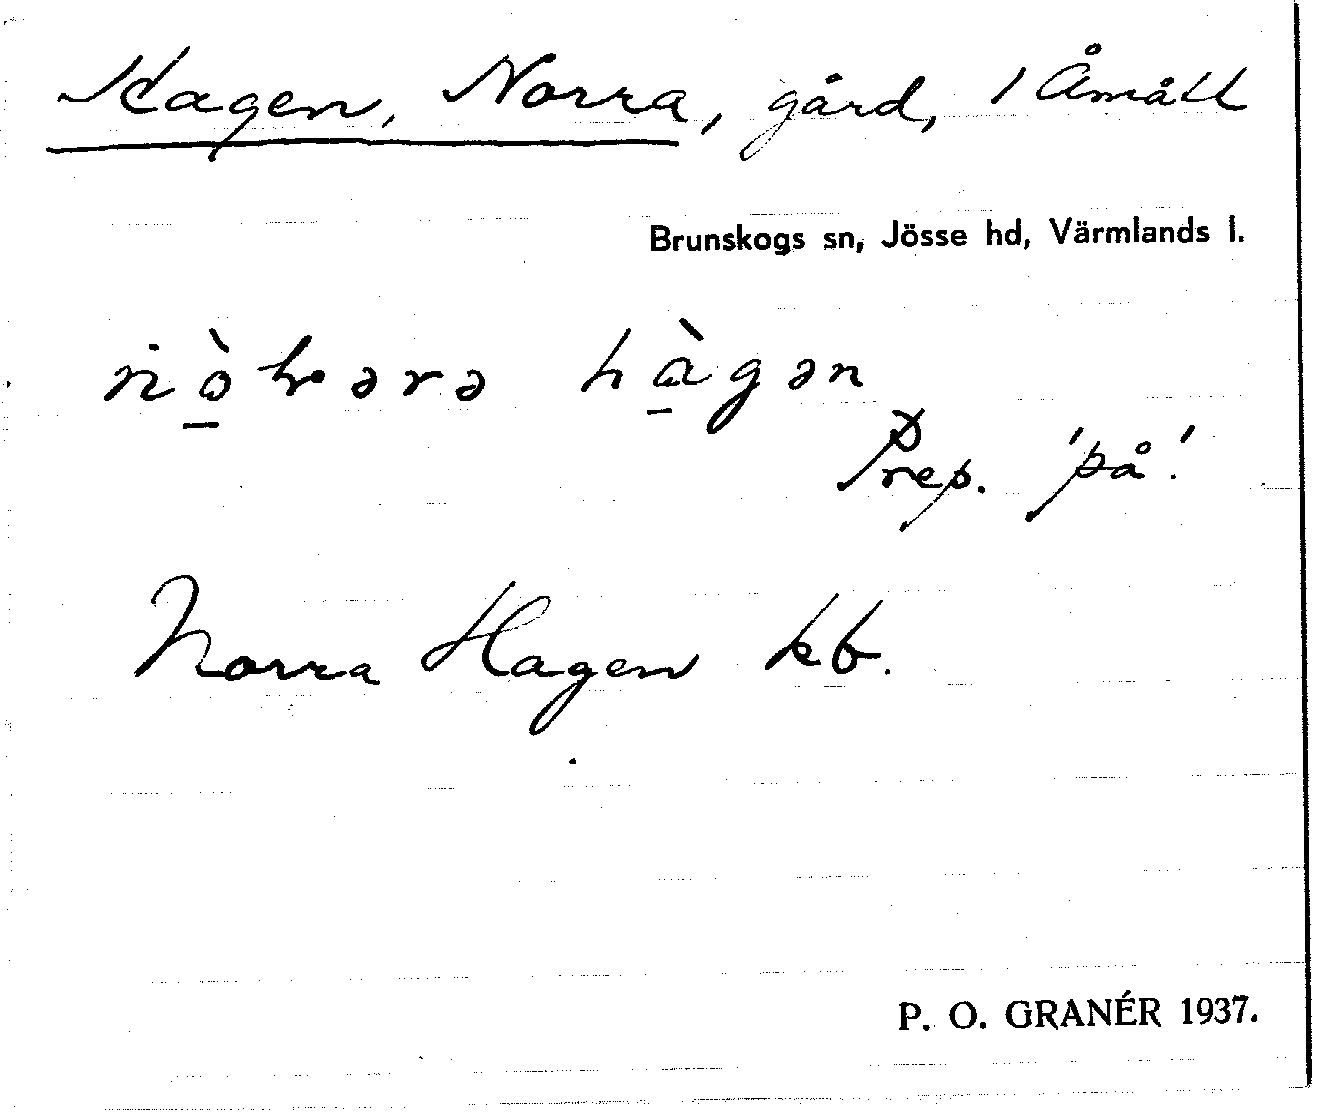 Hagen, Norra, gård, 1 Åmått
Brunskogs sn, Jösse hd, Värmlands l.
hàgən
Prep. 'på'.
Norra Hagen kb.
P. O. GRANÉR 1937.